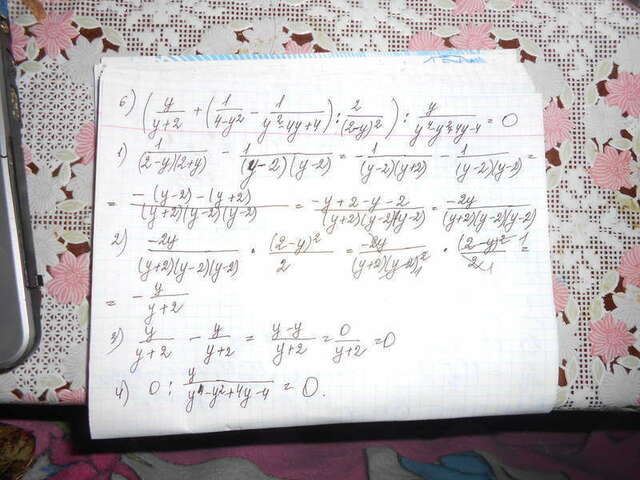 6) (y/(y+2) + (1/(4-y²) - 1/(y²-4y+4)) : 2/(2-y)²) : y/(y⁴-y²+4y-4) = 0
1) 1/((2-y)(2+y)) - 1/((y-2)(y-2)) = - 1/((y-2)(y+2)) - 1/((y-2)(y-2)) =
= (-(y-2)-(y+2))/((y+2)(y-2)(y-2)) = (-y+2-y-2)/((y+2)(y-2)(y-2)) = -2y/((y+2)(y-2)(y-2))
2) -2y/((y+2)(y-2)(y-2)) · (2-y)²/2 = -2y/((y+2)(y-2)²) · (2-y)²/2 =
= - y/(y+2)
3) y/(y+2) - y/(y+2) = (y-y)/(y+2) = 0/(y+2) = 0
4) 0 : y/(y⁴-y²+4y-4) = 0.